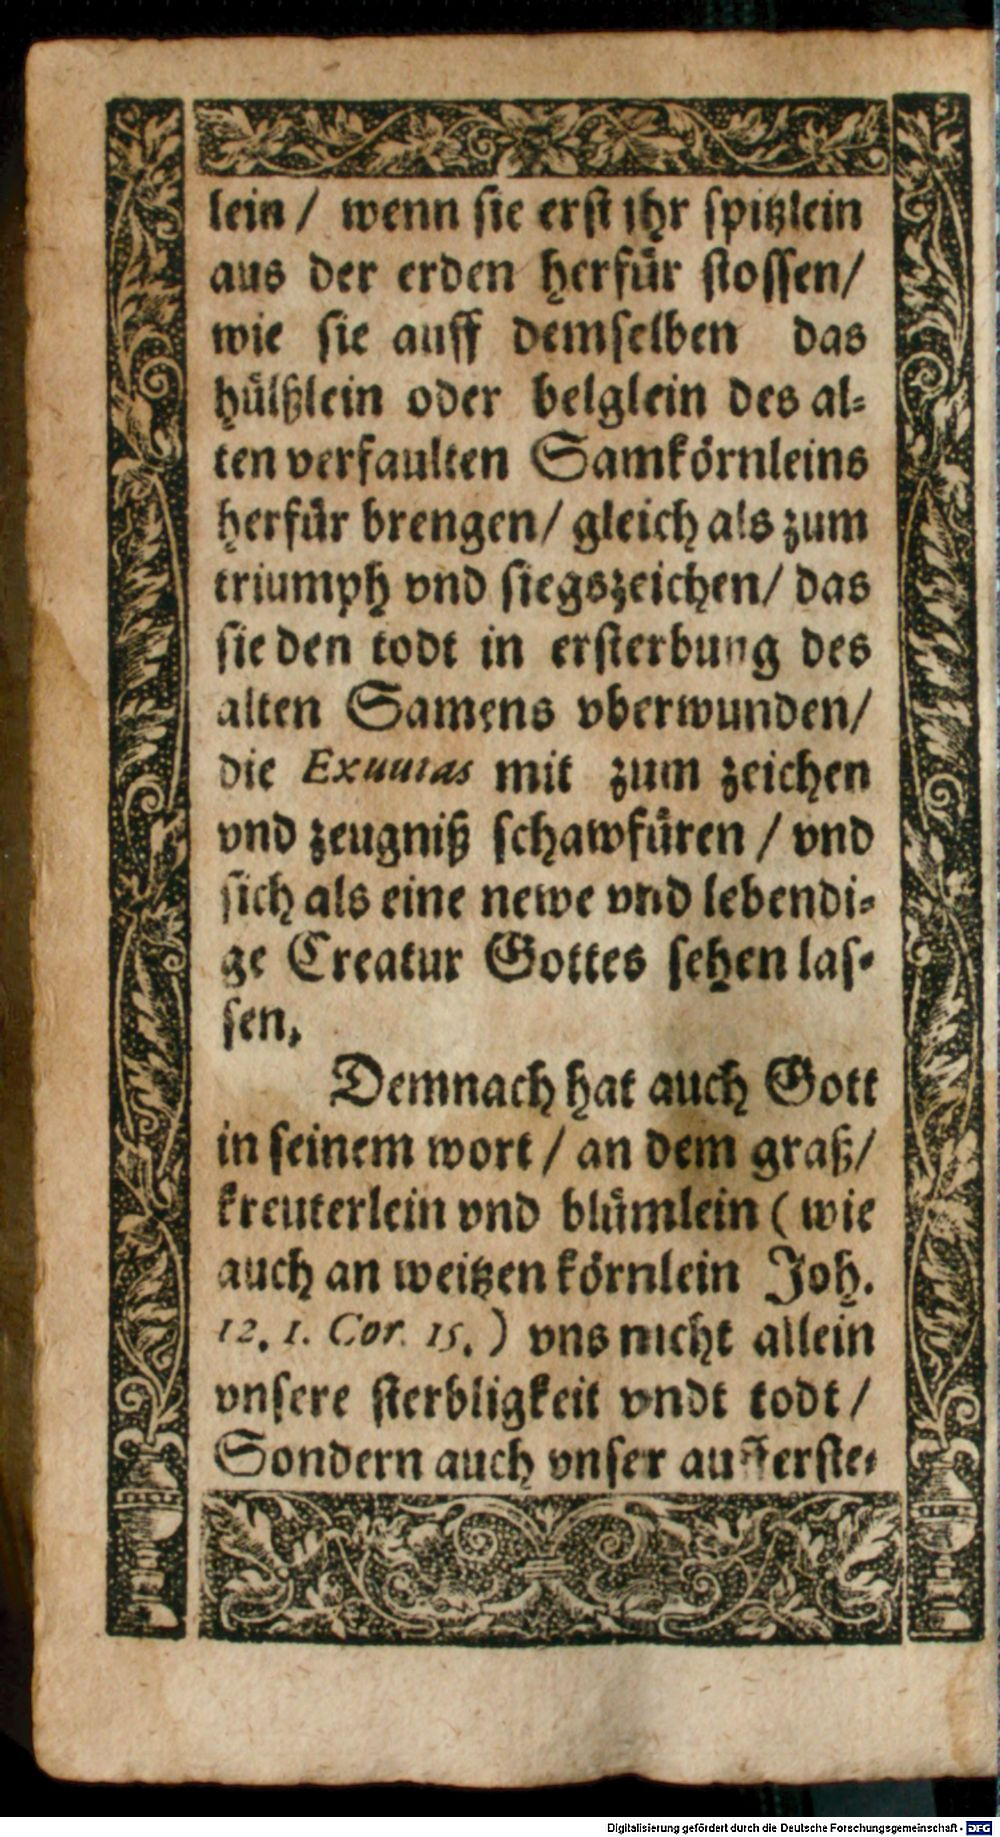 lein / wenn sie erst ihr spitzlein
aus der erden herfür stossen/
wie sie auff demselben das
hülßlein oder belglein des al-
ten verfaulten Samkörnleins
herfür brengen/ gleich als zum
triumph vnd siegszeichen/ das
sie den todt in ersterbung des
alten Samens vberwunden/
die Exuuias mit zum zeichen
vnd zeugniß schawfüren / vnd
sich als eine newe vnd lebendi-
ge Creatur Gottes sehen las-
sen.
Demnach hat auch Gott
in seinem wort / an dem graß/
kreuterlein vnd blümlein ( wie
auch an weitzen körnlein Joh.
12. 1. Cor. 15. ) vns nicht allein
vnsere sterbligkeit vndt todt /
Sondern auch vnser aufferste-
Digitalisierung gefördert durch die Deutsche Forschungsgemeinschaft - DFG